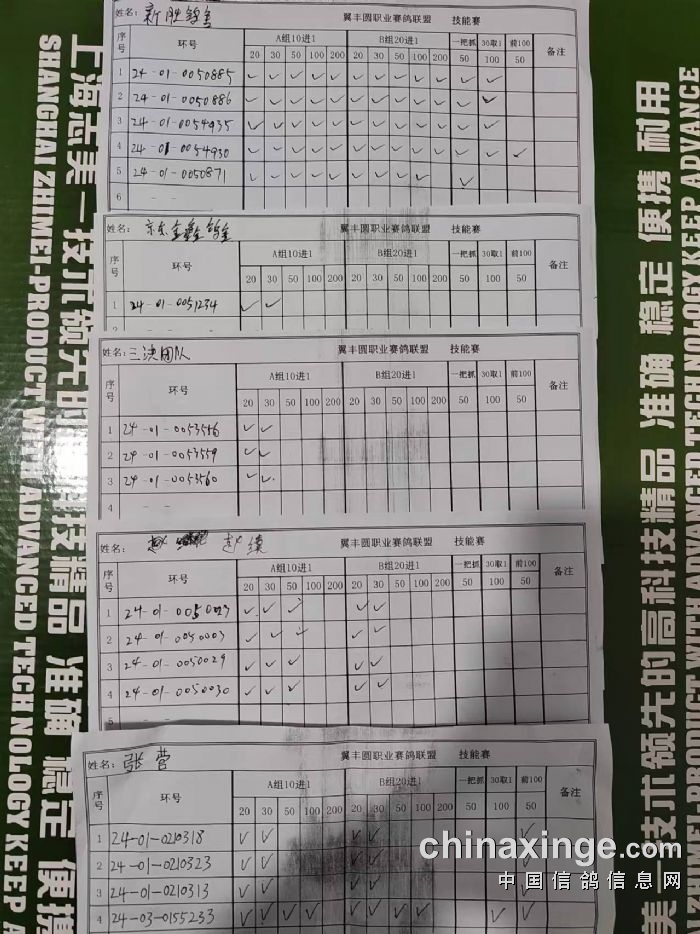 姓名：新胜鸽舍 翼丰圆职业赛鸽联盟 技能赛
序号 环号 A组10进1 B组20进1 一把抓 30取1 前100 备注
20 30 50 100 200 20 30 50 100 200 50 100 50
1 24-01-0050885 ✓ ✓ ✓ ✓ ✓ ✓ ✓ ✓ ✓ ✓ ✓ ✓
2 24-01-0050886 ✓ ✓ ✓ ✓ ✓ ✓ ✓ ✓ ✓ ✓ ✓ ✓
3 24-01-0054935 ✓ ✓ ✓ ✓ ✓ ✓ ✓ ✓ ✓ ✓ ✓ ✓
4 24-01-0054930 ✓ ✓ ✓ ✓ ✓ ✓ ✓ ✓ ✓ ✓ ✓ ✓ ✓
5 24-01-0050871 ✓ ✓ ✓ ✓ ✓ ✓ ✓ ✓ ✓ ✓
6 - -
姓名：京东金鑫鸽舍 翼丰圆职业赛鸽联盟 技能赛
序号 环号 A组10进1 B组20进1 一把抓 30取1 前100 备注
20 30 50 100 200 20 30 50 100 200 50 100 50
1 24-01-0051234 ✓ ✓
姓名：团队 翼丰圆职业赛鸽联盟 技能赛
序号 环号 A组10进1 B组20进1 一把抓 30取1 前100 备注
20 30 50 100 200 20 30 50 100 200 50 100 50
1 24-01-0053556 ✓ ✓
2 24-01-0053559 ✓ ✓
3 24-01-0053560 ✓ ✓
4 - -
姓名： 赵续 翼丰圆职业赛鸽联盟 技能赛
序号 环号 A组10进1 B组20进1 一把抓 30取1 前100 备注
20 30 50 100 200 20 30 50 100 200 50 100 50
1 24-01-0050023 ✓ ✓ ✓ ✓ ✓
2 24-01-0050003 ✓ ✓ ✓ ✓ ✓
3 24-01-0050029 ✓ ✓ ✓ ✓ ✓
4 24-01-0050030 ✓ ✓ ✓ ✓ ✓
5 - -
姓名：张营 翼丰圆职业赛鸽联盟 技能赛
序号 环号 A组10进1 B组20进1 一把抓 30取1 前100 备注
20 30 50 100 200 20 30 50 100 200 50 100 50
1 24-01-0210318 ✓ ✓ ✓ ✓ ✓
2 24-01-0210323 ✓ ✓ ✓ ✓ ✓
3 24-01-0210313 ✓ ✓ ✓ ✓ ✓
4 24-03-0155233 ✓ ✓ ✓ ✓ ✓ ✓ ✓ ✓ ✓ ✓
上海志美－技术领先的高科技精品 准确 稳定 便携
SHANGHAI ZHIMEI-PRODUCT WITH ADVANCED TECHNOLOGY KEEP ADVANCE
美－技术领先的高科技精品 准确 稳定 便携 耐用
ZHIMEI-PRODUCT WITH ADVANCED TECHNOLOGY KEEP ADVANCE
chinaxinge.com
中国信鸽信息网